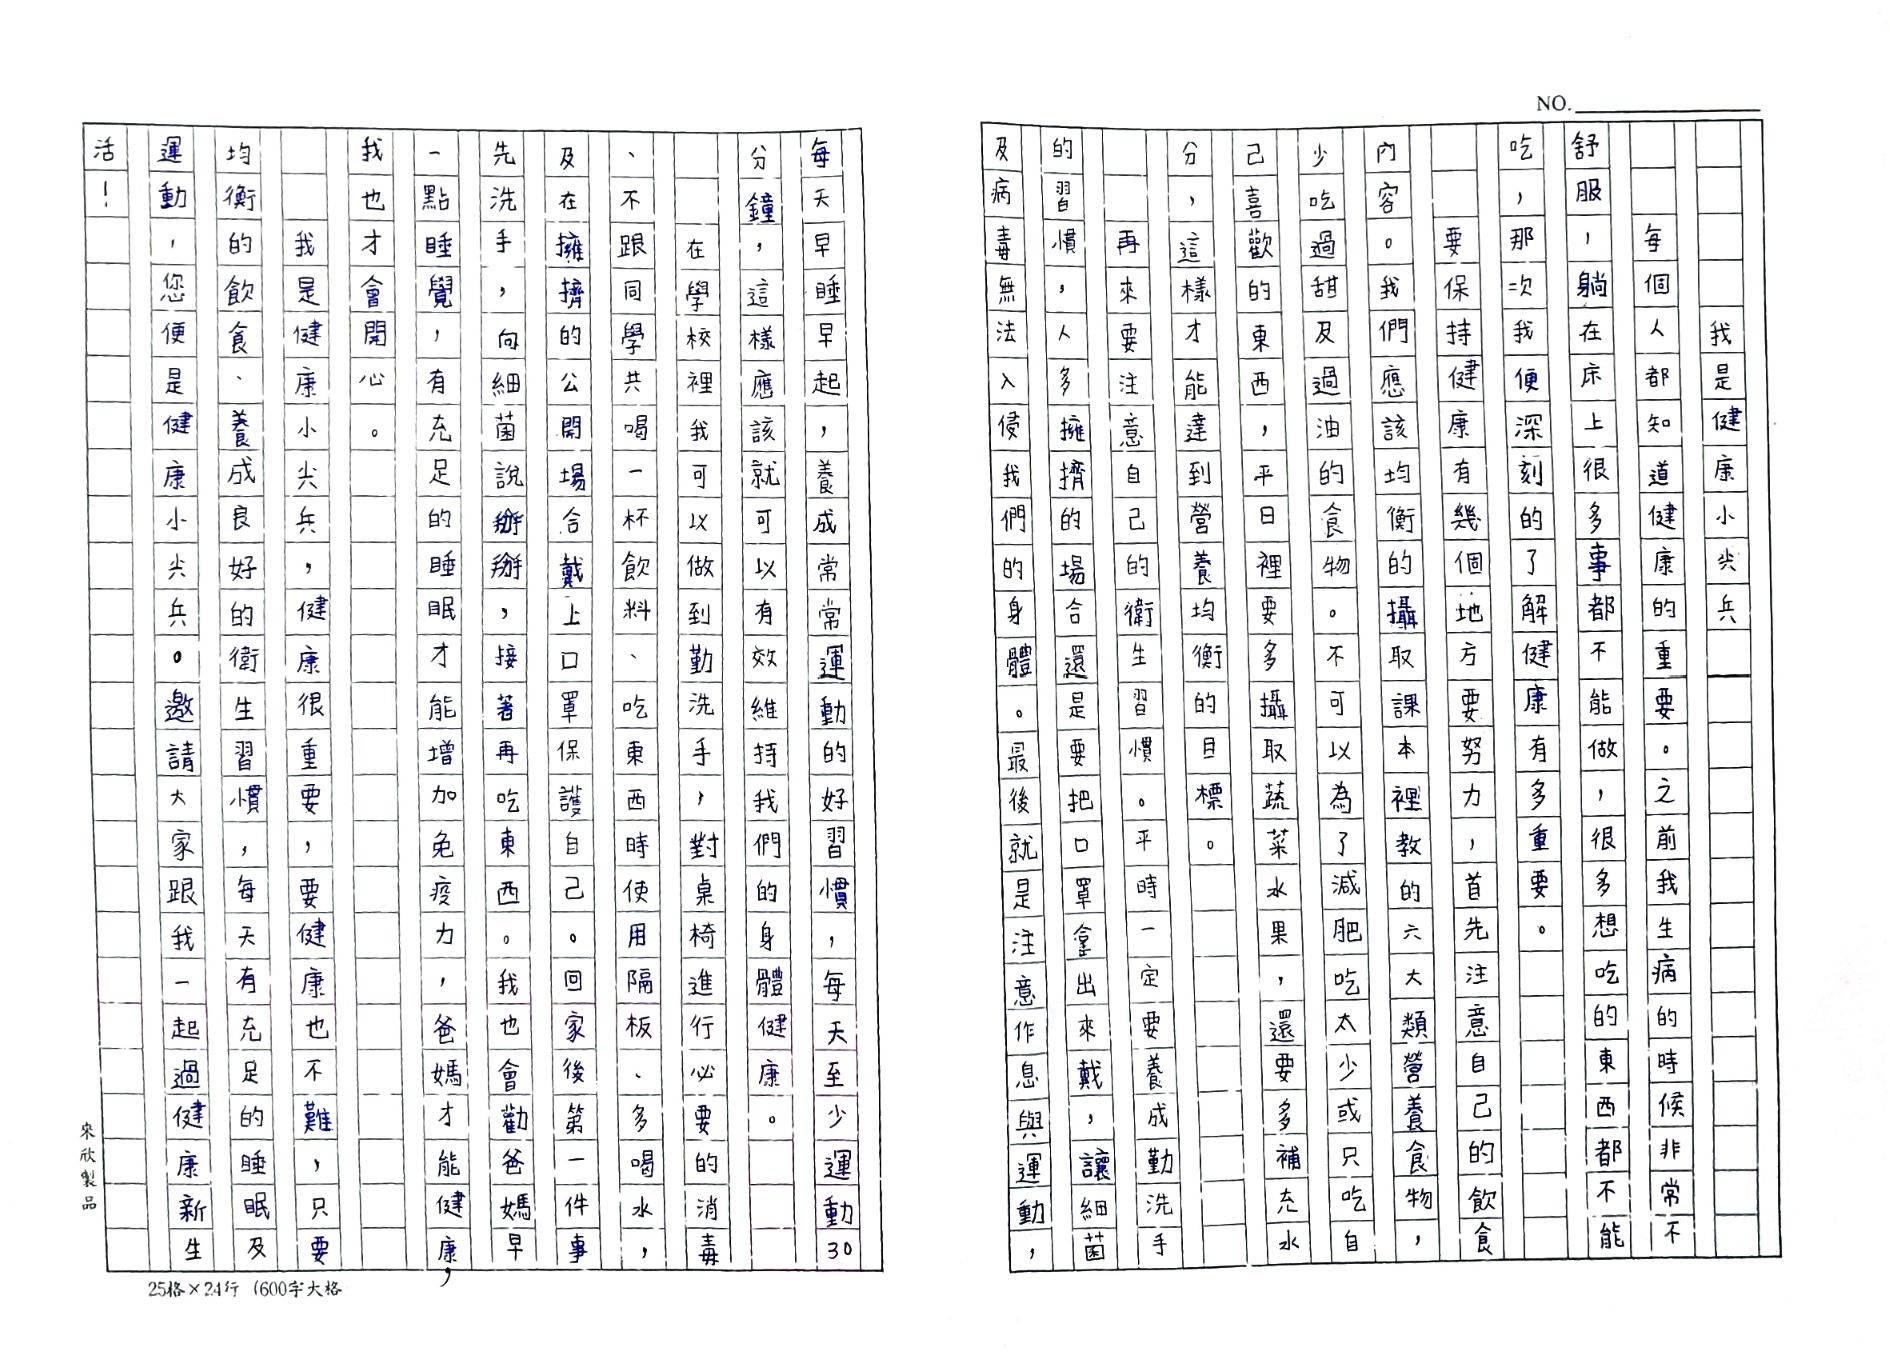 NO.
我是健康小尖兵
每個人都知道健康的重要。之前我生病的時候非常不
舒服，躺在床上很多事都不能做，很多想吃的東西都不能
吃，那次我便深刻的了解健康有多重要。
要保持健康有幾個地方要努力，首先注意自己的飲食
內容。我們應該均衡的攝取課本裡教的六大類營養食物，
少吃過甜及過油的食物。不可以為了減肥吃太少或只吃自
己喜歡的東西，平日裡要多攝取蔬菜水果，還要多補充水
分，這樣才能達到營養均衡的目標。
再來要注意自己的衛生習慣。平時一定要養成勤洗手
的習慣，人多擁擠的場合還是要把口罩拿出來戴，讓細菌
及病毒無法入侵我們的身體。最後就是注意作息與運動，
每天早睡早起，養成常運動的好習慣，每天至少運動30
分鐘，這樣應該就可以有效維持我們的身體健康。
在學校裡我可以做到勤洗手，對桌椅進行必要的消毒
、不跟同學共喝一杯飲料、吃東西時使用隔板、多喝水，
及在擁擠的公開場合戴上口罩保護自己。回家後第一件事
先洗手，向細菌說掰掰，接著再吃東西。我也會勸爸媽早
一點睡覺，有充足的睡眠才能增加免疫力，爸媽才能健康，
我也才會開心。
我是健康小尖兵，健康很重要，要健康也不難，只要
均衡的飲食、養成良好的衛生習慣，每天有充足的睡眠及
運動，您便是健康小尖兵。邀請大家跟我一起過健康新生
活！
來欣製品
25格×24行 (600字大格